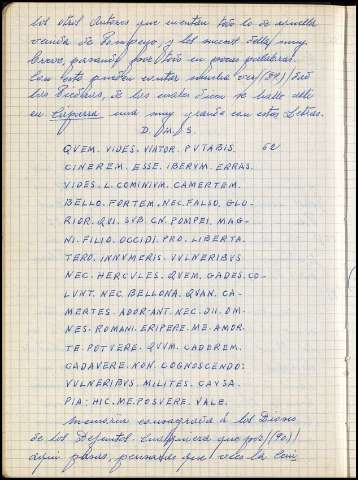 los otros Autores que cuentan todo lo de aquella
venida de Pompeyo, y los sucesos della muy
breve, pasando por todo en pocas palabras.
Con este pueden contar mucha ver/(89)/dad
las Piedras, de las cuales dicen se halló allí
en Caparra una muy grande con estas Letras.
D. M. S.
QVEM. VIDES. VIATOR. PVTABIS. 62
CINEREM. ESSE. IBERVM. ERRAS.
VIDES. L. COMINIVM. CAMERTEM.
BELLO. FORTEM. NEC. FALSO. GLO-
RIOR. QUI. SVB. CN. POMPEI. MAG-
NI. FILIO. OCCIDI. PRO. LIBERTA.
TERO. INNVMERIS. VVLNERIBVS
NEC. HERCVLES. QVEM. GADES. CO-
LVNT. NEC. BELLONA. QVAN. CA-
MERTES. ADOR-ANT. NEC. DII. OM-
NES. ROMANI. ERIPERE. ME. AMOR.
TE. POTVERE. QVVM. CADEREM.
CADAVERE. NON. COGNOSCENDO:
VVLNERIBVS. MILITES. CAVSA.
PIA: HIC. ME. POSVERE. VALE.
Memoria consagrada á los Dioses
de los Defuntos. Cualquiera que por/(90)/
aquí pasas, pensarás que veles la